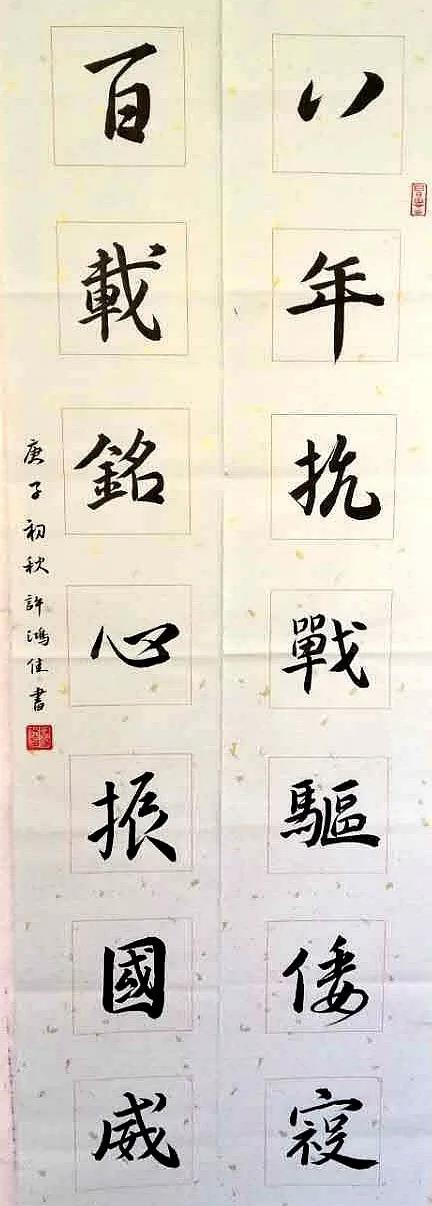 八年抗戰驅倭寇
百載銘心振國威
庚子初秋許鴻佳書